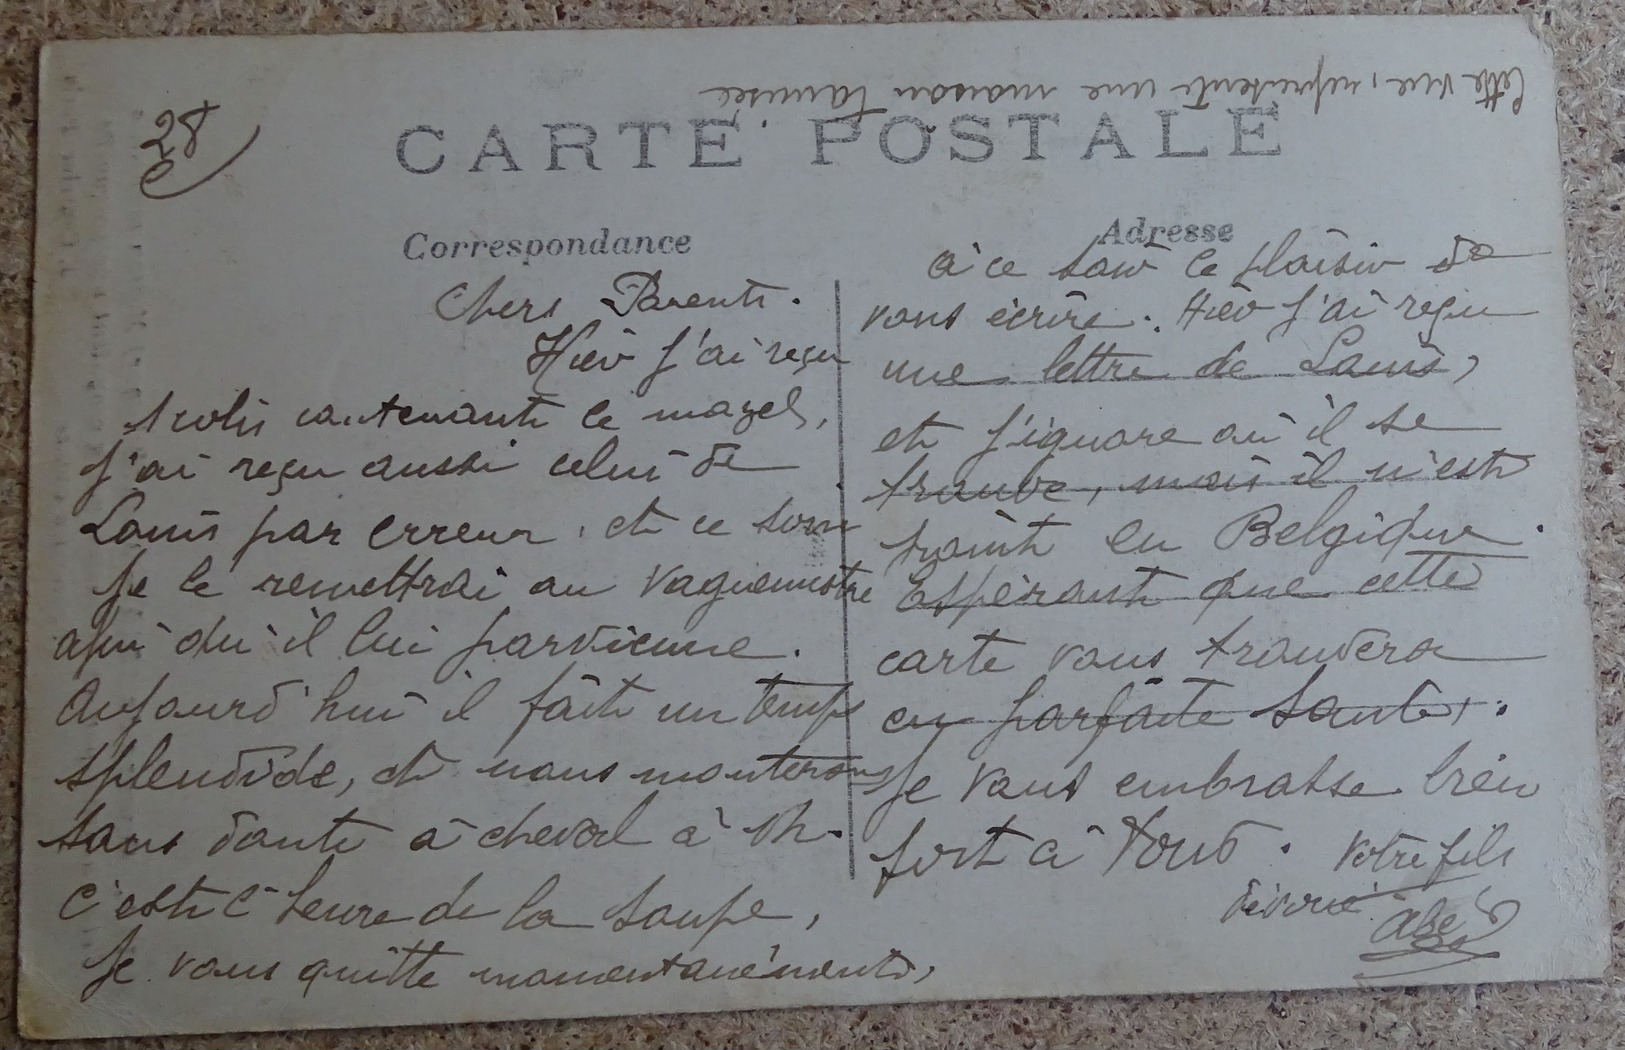 Cette vue, représente une maison
28
CARTE POSTALE
Correspondance
Chers Parents.
Hier j'ai reçu
colis contenant le
j'ai reçu aussi celui de
Louis par erreur, et ce soir
je le remettrai au vaguemestre
afin qu'il lui parvienne.
Aujourd'hui il fait un temps
splendide, et nous monterons
sans doute à cheval à 1h.
C'est l'heure de la soupe,
je vous quitte momentanément,
Adresse
à ce soir le plaisir de
vous écrire. Hier j'ai reçu
une lettre de Louis,
et j'ignore où il se
trouve, mais il n'est
point en Belgique.
Espérant que cette
carte vous trouvera
en parfaite santé,.
Je vous embrasse bien
fort à tous. Votre fils
dévoué
Abel